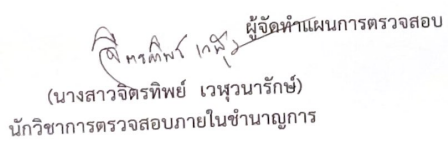 ผู้จัดทำแผนการตรวจสอบ
จิตรทิพย์ เวฬุ
(นางสาวจิตรทิพย์ เวฬุวนารักษ์)
นักวิชาการตรวจสอบภายในชำนาญการ